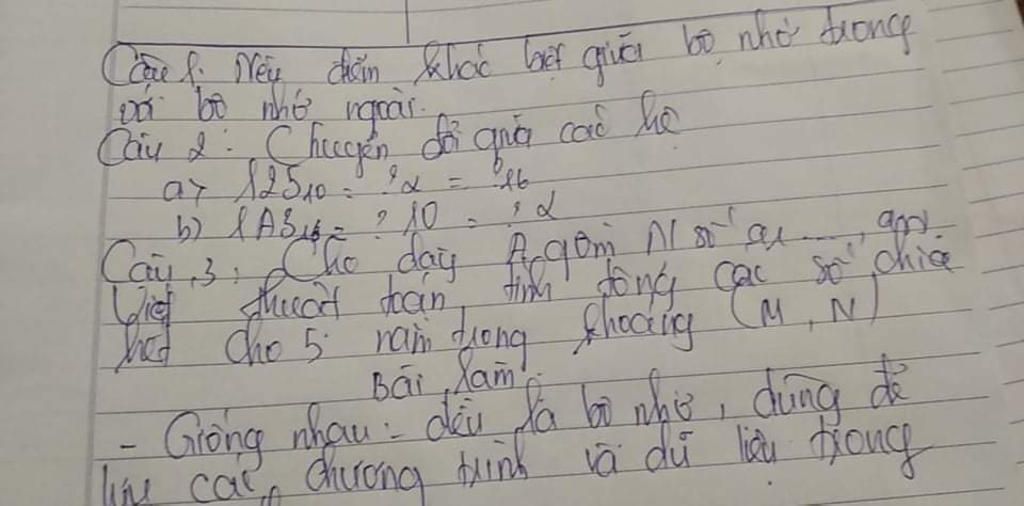 Câu 1. Nêu điểm khác biệt giữa bộ nhớ trong
và bộ nhớ ngoài.
Câu 2: Chuyển đổi giữa các hệ
a) 125₁₀ = ?₂ = ?₁₆
b) 1A3₁₆ = ?10 = ?2
Câu 3: Cho dãy A gồm N số a₁ ..., aₙ.
Viết thuật toán tính tổng các số chia
hết cho 5 nằm trong khoảng (M, N)
Bài làm
- Giống nhau: đều là bộ nhớ, dùng để
lưu các chương trình và dữ liệu trong